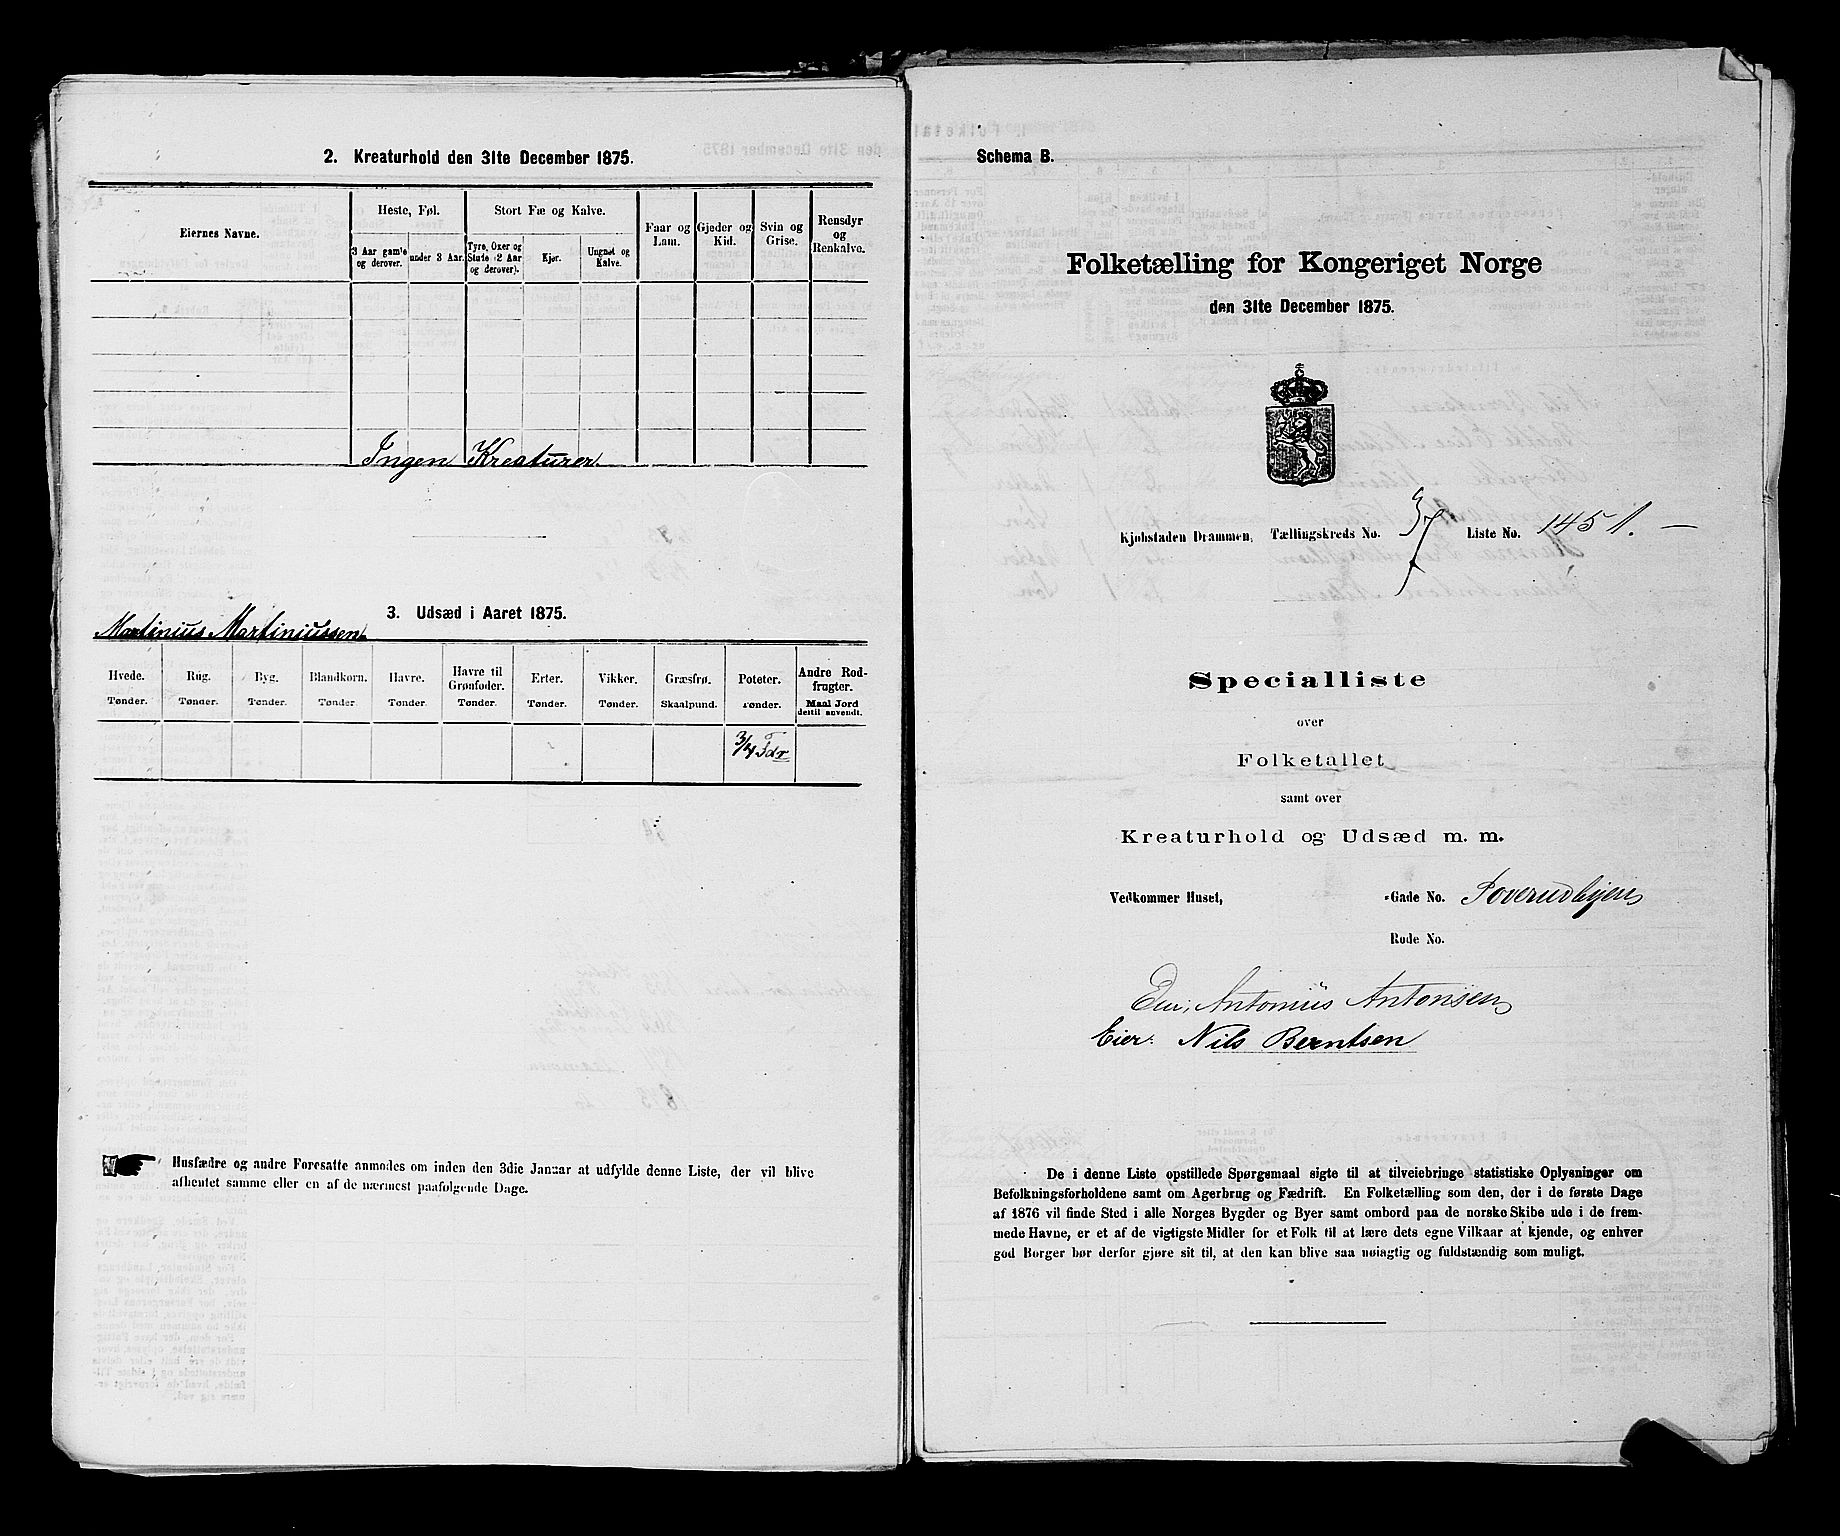 2. Kreaturhold den 31te December 1875.
Eiernes Navne.
Heste, Føl.
3 Aar gamle og derover.
under 3 Aar.
Stort Fæ og Kalve.
Tyre, Oxer og Stude (2 Aar og derover).
Kjør.
Ungnøt og Kalve.
Faar og Lam.
Gjeder og Kid.
Svin og Grise.
Rensdyr og Renkalve.
Ingen Kreaturer.
3. Udsæd i Aaret 1875.
Martinius Martiniussen
Hvede. Rug. Byg. Blandkorn. Havre. Havre til Grønfoder. Erter. Vikker. Græsfrø. Poteter. Andre Rodfrugter.
Tønder. Tønder. Tønder. Tønder. Tønder. Tønder. Tønder. Tønder. Skaalpund. Tønder. Maal Jord dertil anvendt.
3/4 Tdr
Husfædre og andre Foresatte anmodes om inden den 3die Januar at udfylde denne Liste, der vil blive
afhentet samme eller en af de nærmest paafølgende Dage.
Schema B.
Folketælling for Kongeriget Norge
den 31te December 1875.
Kjøbstaden Drammen, Tællingskreds No. 37 Liste No. 145 1.
Specialliste
over
Folketallet
samt over
Kreaturhold og Udsæd m. m.
Vedkommer Huset, -Gade No. Toverudbyen
Rode No.
Eier, Antonius Antonsen
Eier: Nils Berntsen
De i denne Liste opstillede Spørgsmaal sigte til at tilveiebringe statistiske Oplysninger om
Befolkningsforholdene samt om Agerbrug og Fædrift. En Folketælling som den, der i de første Dage
af 1876 vil finde Sted i alle Norges Bygder og Byer samt ombord paa de norske Skibe ude i de frem-
mede Havne, er et af de vigtigste Midler for et Folk til at lære dets egne Vilkaar at kjende, og enhver
god Borger bør derfor gjøre sit til, at den kan blive saa nøiagtig og fuldstændig som muligt.